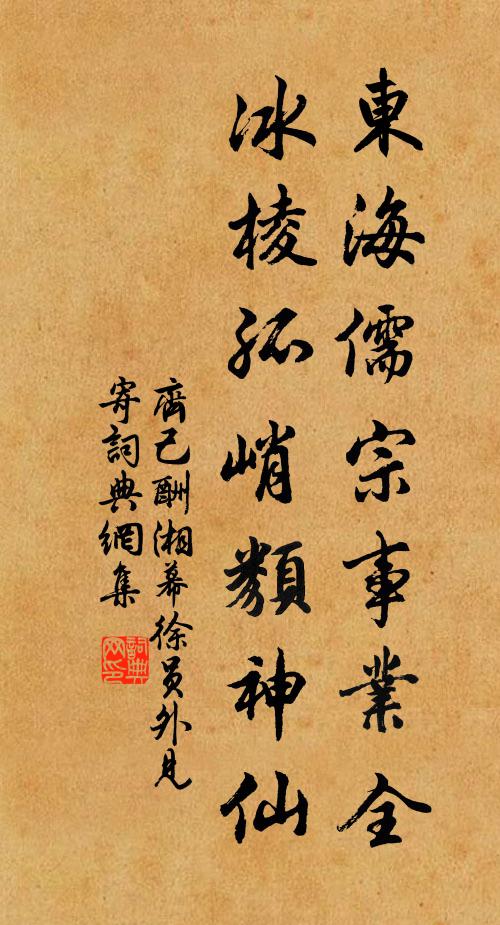 東海儒宗事業全
冰棱孤峭類神仙
齊己酬湘幕徐員外見
寄詞典網集
詞典
网印